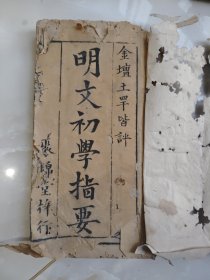 金壇王罕皆評
明文初學指要
聚錦堂梓行